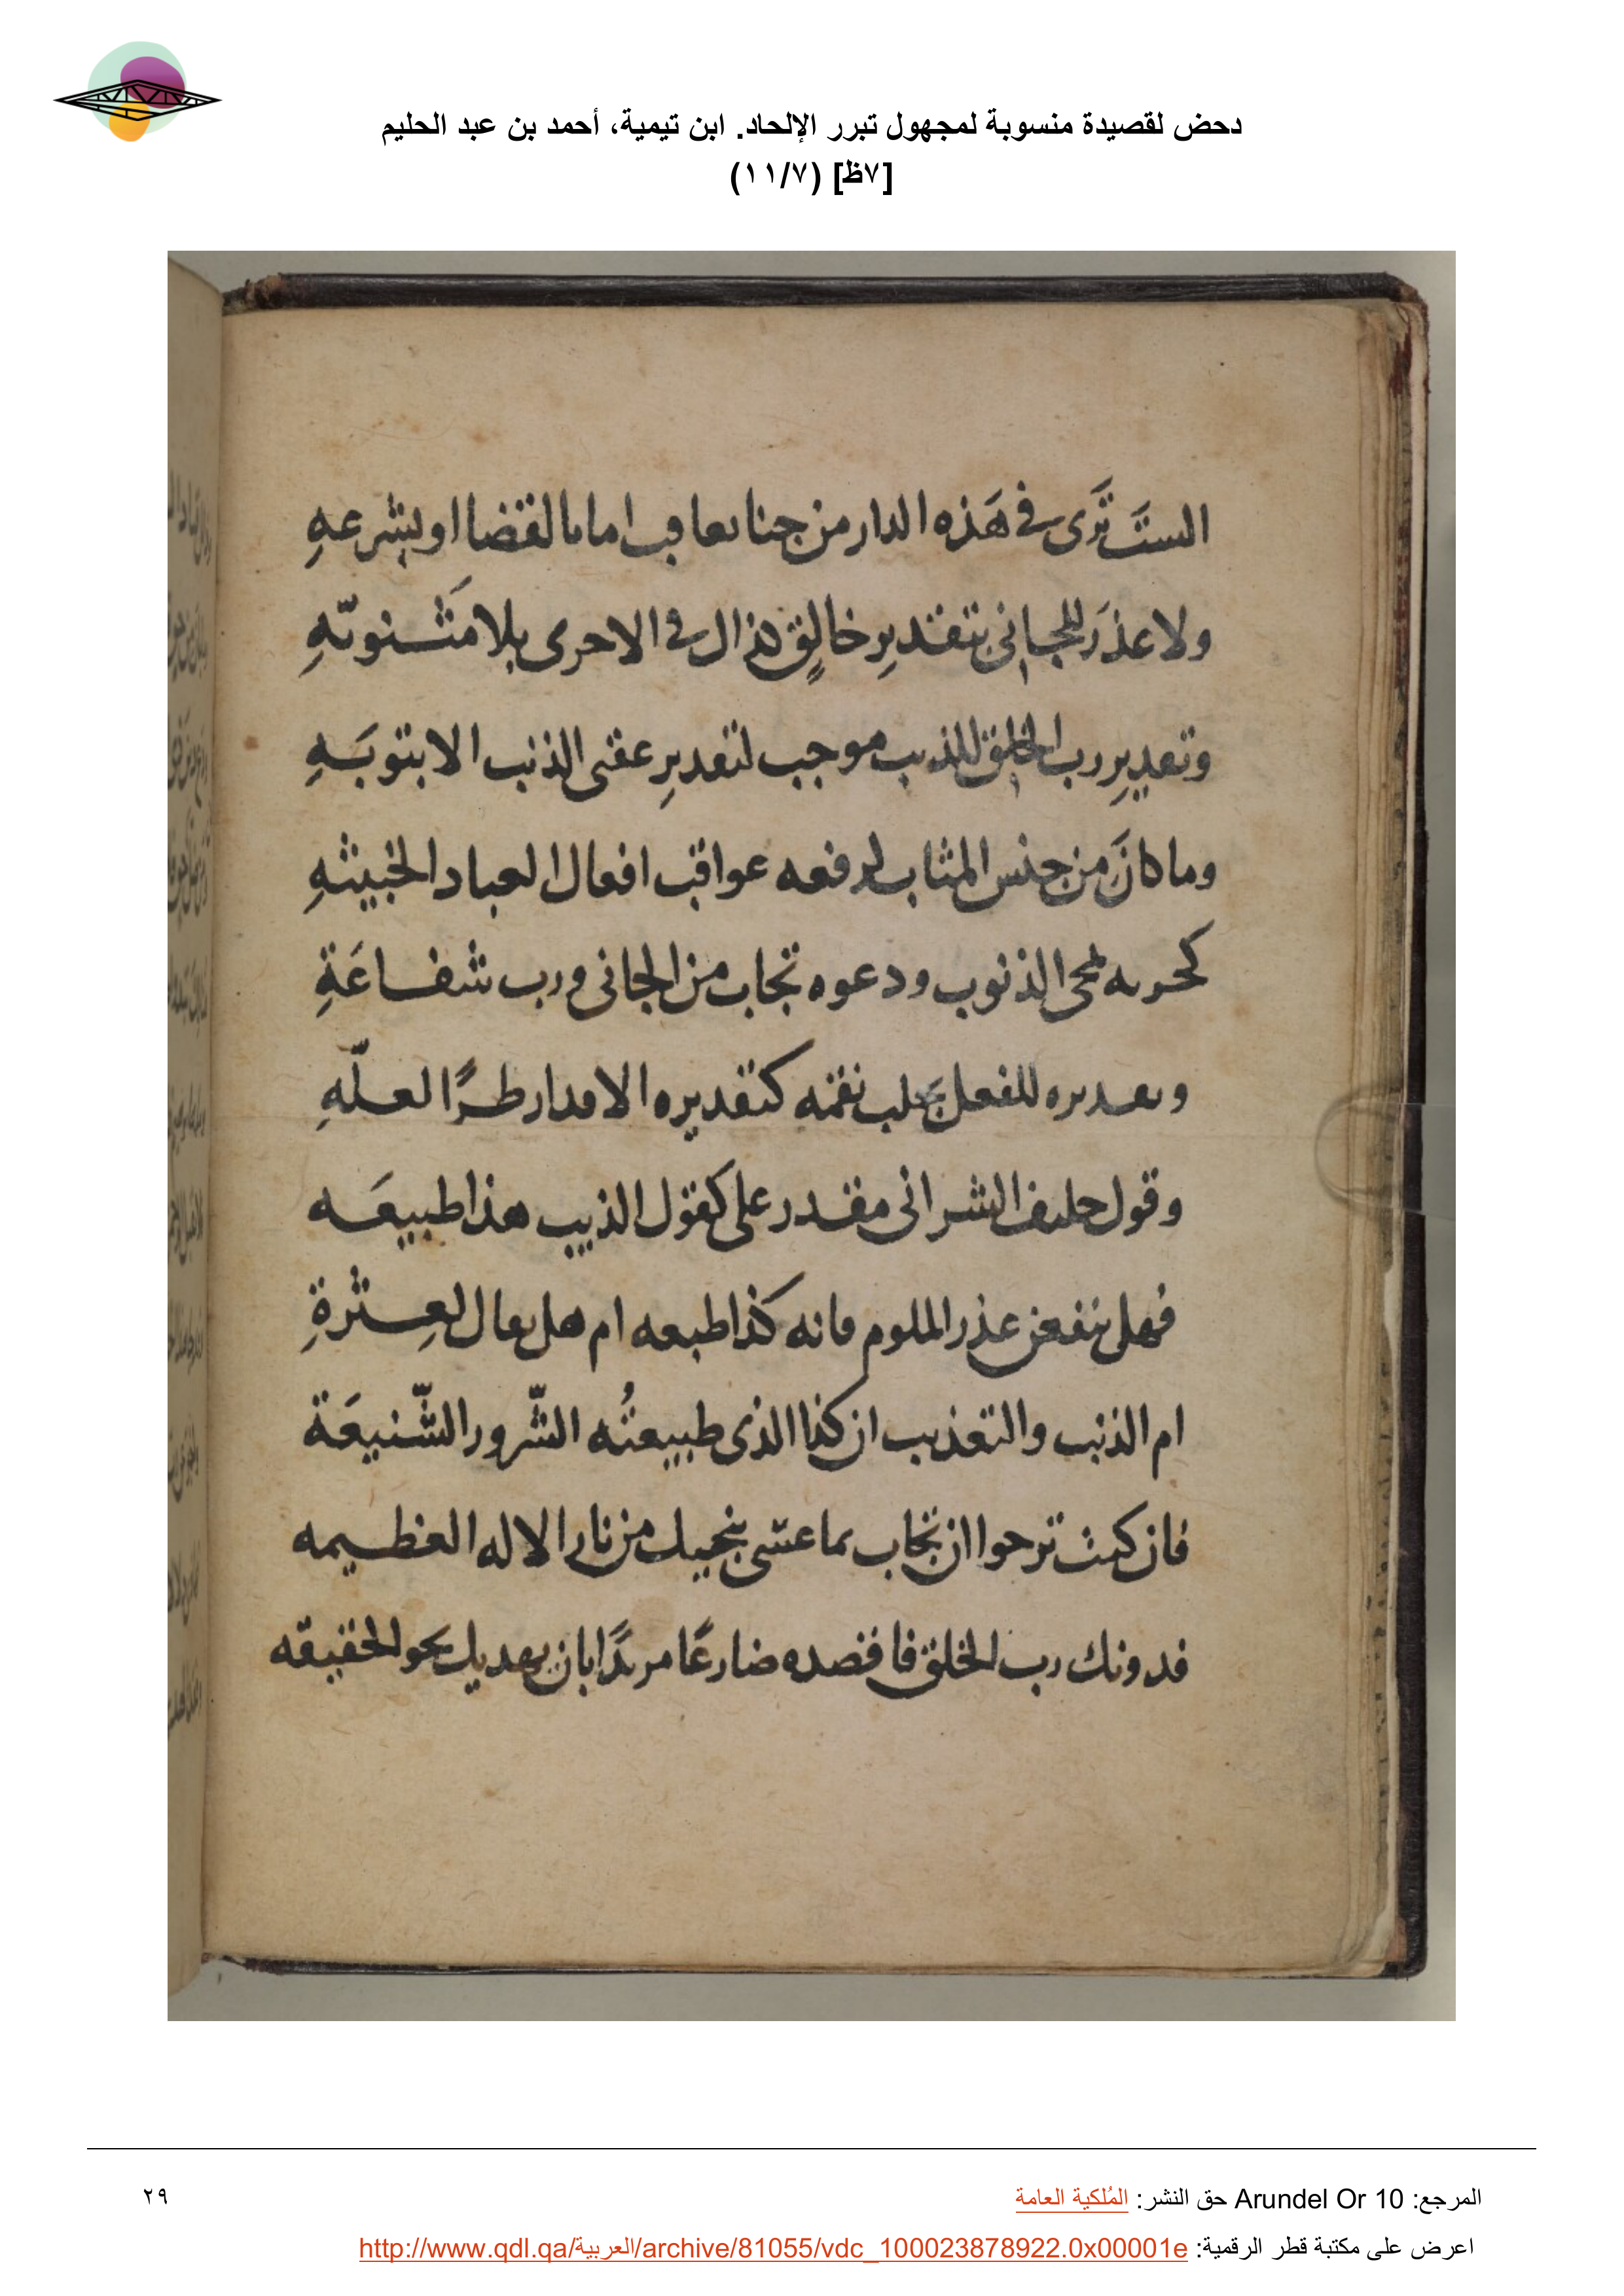 دحض لقصيدة منسوبة لمجهول تبرر الإلحاد. ابن تيمية، أحمد بن عبد الحليم
[٧ظ] (١١/٧)
الستَ تَرَى في هَذه الدار من جنا يعاقب اما بالقضا او بشرعهِ
ولا عذرَ للجاني بتقديرِ خالقٍ كذال في الاخرى بلا مَثنويّهِ
وتقديرِ رب الخلق للذنب موجب لتقديرِ عقبى الذنب الا بتوبَهِ
وما كانَ من جنس المثاب لرفعه عواقب افعال العباد الخبيثهِ
كحربه تمحى الذنوب ودعوه تجاب من الجانى ورب شفاعَةِ
وتقديره للفعل يجَلب نقمه كتقديره الاقدار طرًا لعلّهِ
وقول حليف الشر انى مقدر على كقول الذيب هذا طبيعَه
فهل ينفعن عذر الملوم فانه كذا طبعه ام هل يقال لعِثرةِ
ام الذنب والتعذيب ان كذا الذى طبيعتُه الشّرور الشّنيعَة
فان كنت ترجوا ان تجاب بما عسى ينجيك من نار الاله العظيمه
فدونك رب الخلق فاقصده ضارعًا مريدًا بان يهديك نحو الحقيقه
المرجع: Arundel Or 10 حق النشر: المُلكية العامة
٢٩
اعرض على مكتبة قطر الرقمية: http://www.qdl.qa/العربية/archive/81055/vdc_100023878922.0x00001e